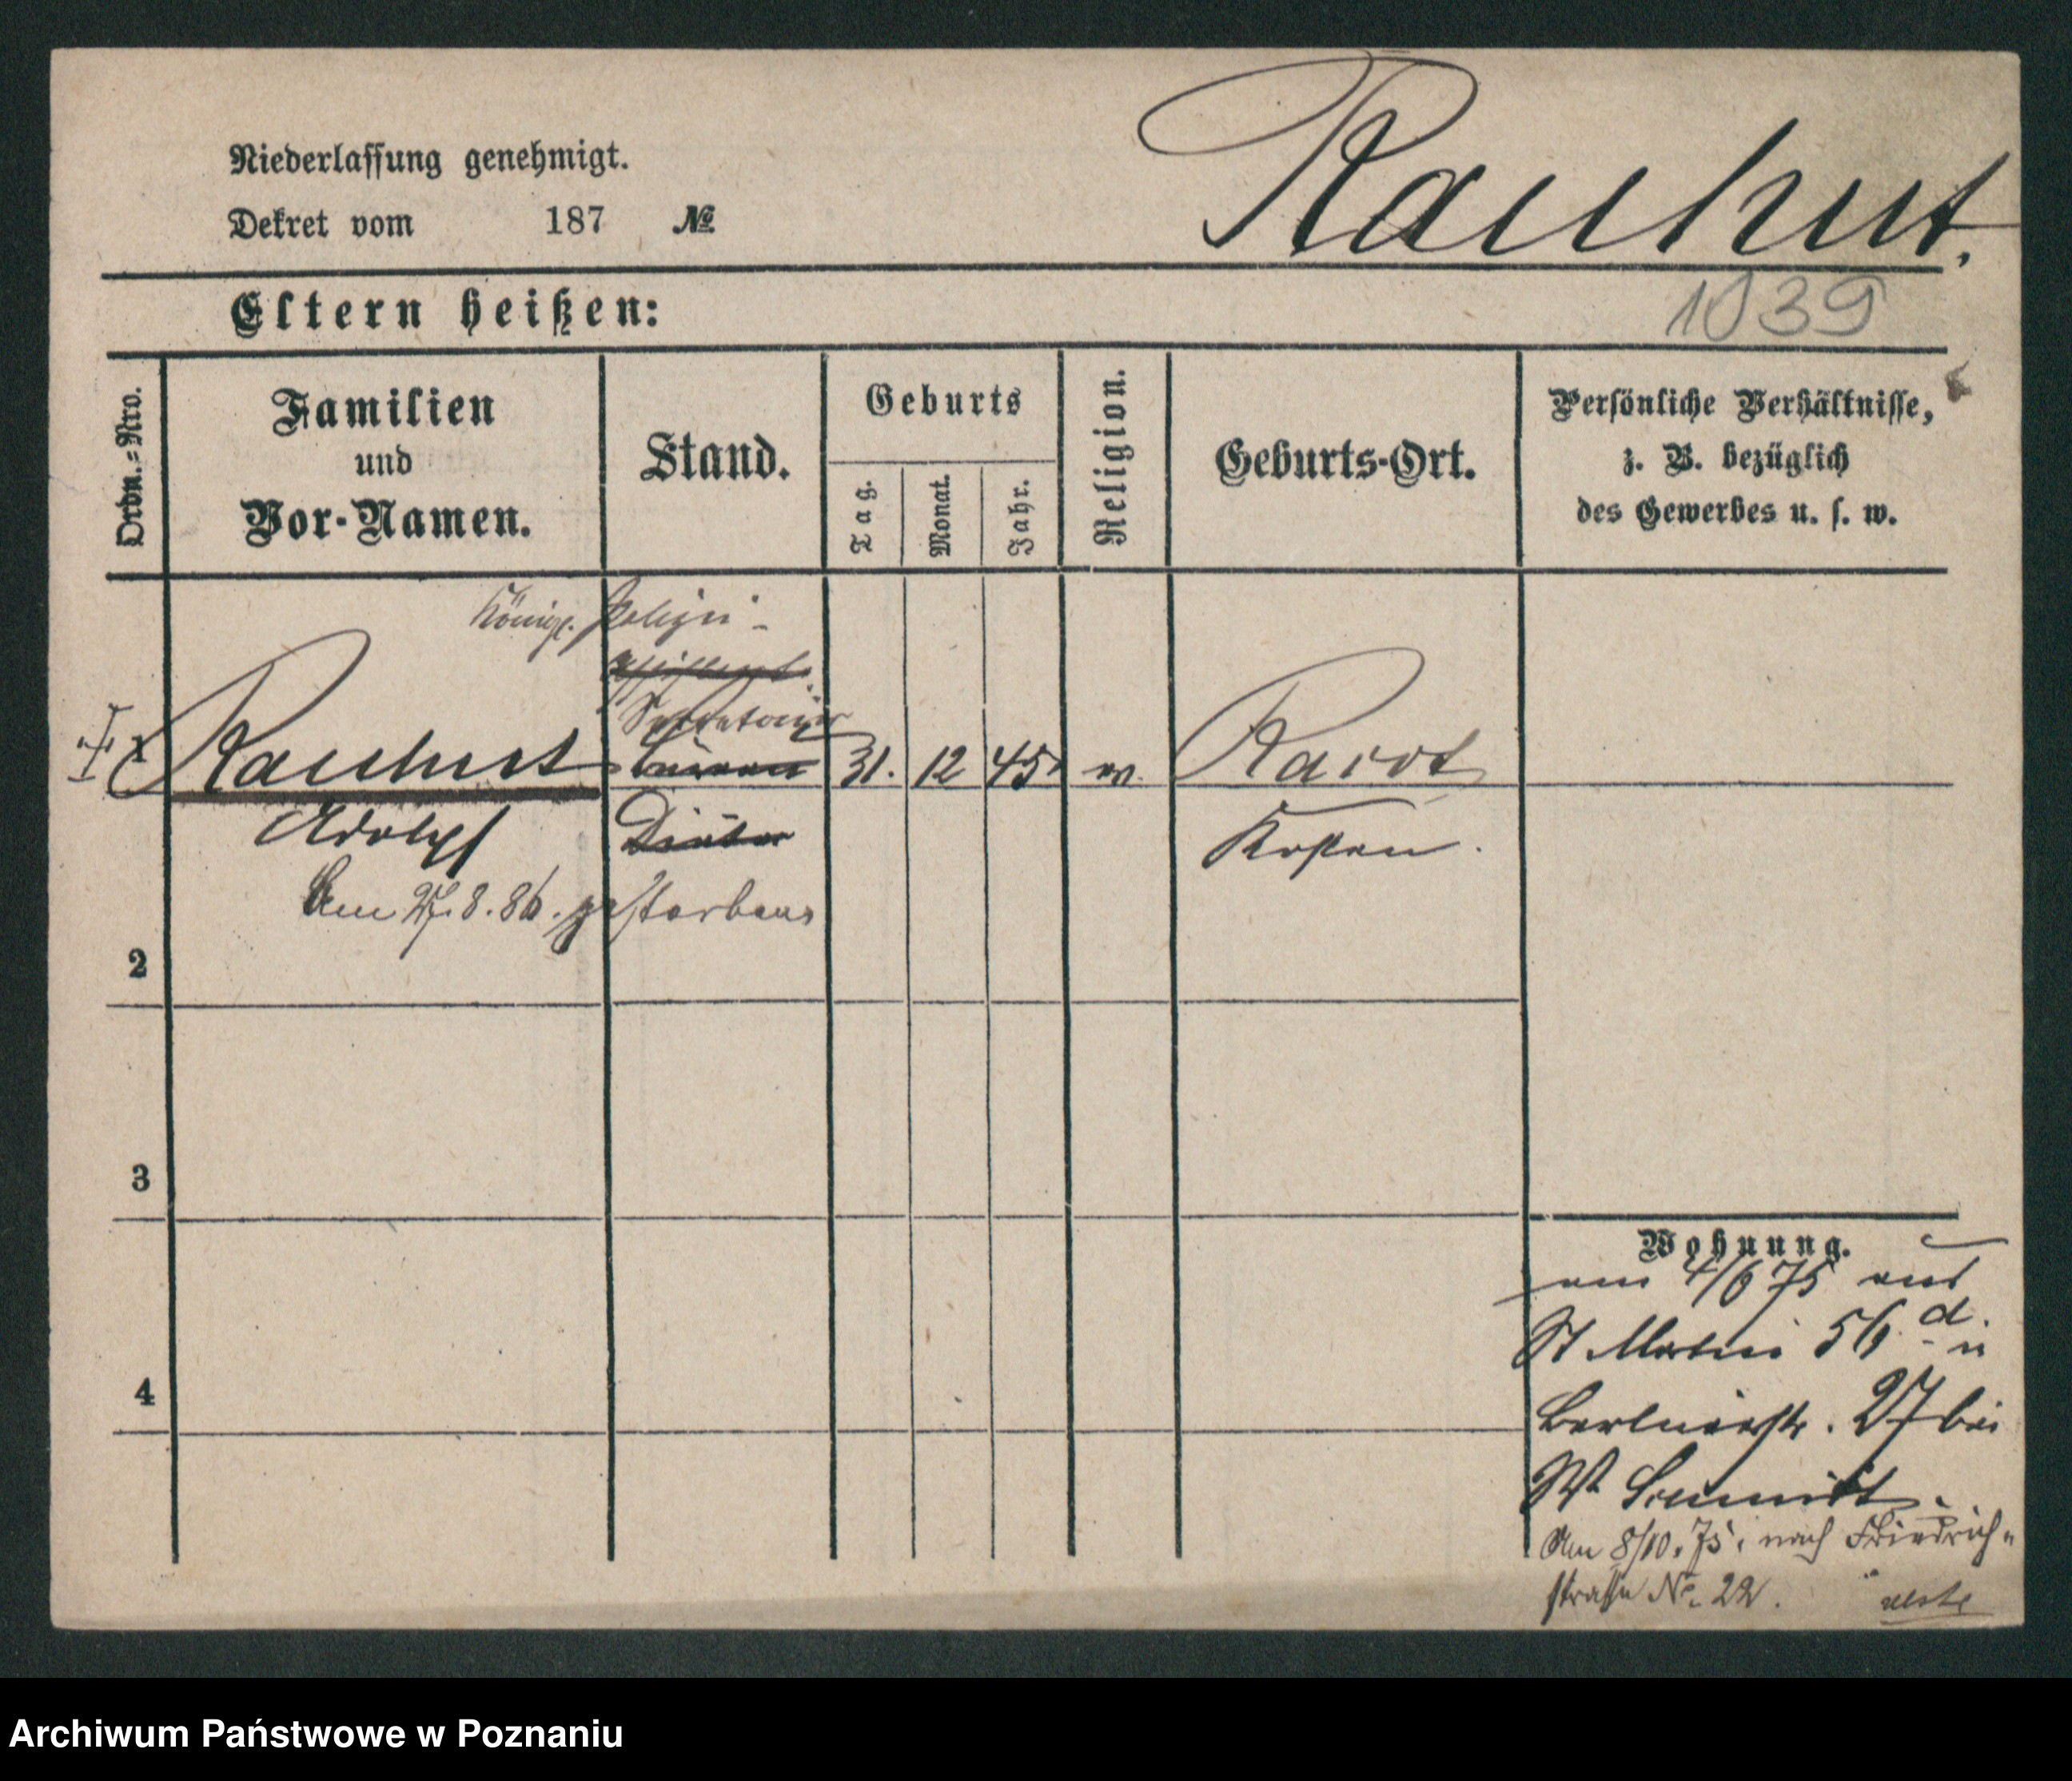 Rauhut.
Niederlassung genehmigt.
Dekret vom 187 №
1039
Eltern heißen:
Ordn.=Nro.
Familien
und
Vor-Namen.
Stand.
Geburts
Tag.
Monat.
Jahr.
Religion.
Geburts-Ort.
Persönliche Verhältnisse,
z. B. bezüglich
des Gewerbes u. s. w.
Königl. Polizei-
Assistent
Sekretair
Rauhut Büreau 31. 12 45.
Adolph Diätar Kosten.
Am 27.8.86. gestorben
2
3
4
Wohnung.
am 4/6 75 aus
St Martin 56 d. u
Berlinerstr. 27 bei
Am 8/10. 75. nach Friedrich-
straße No. 22.
Archiwum Państwowe w Poznaniu